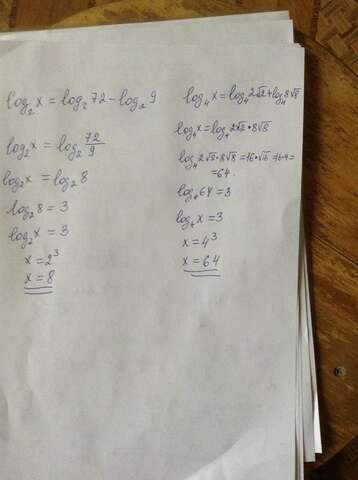 log₂x = log₂72 - log₂9
log₂x = log₂ 72/9
log₂x = log₂8
log₂8 = 3
log₂x = 3
x = 2³
x = 8
log₄x = log₄2√2 + log₄8√8
log₄x = log₄2√2 · 8√8
log₄2√2 · 8√8 = 16 · √16 = 16·4 =
= 64
log₄64 = 3
log₄x = 3
x = 4³
x = 64